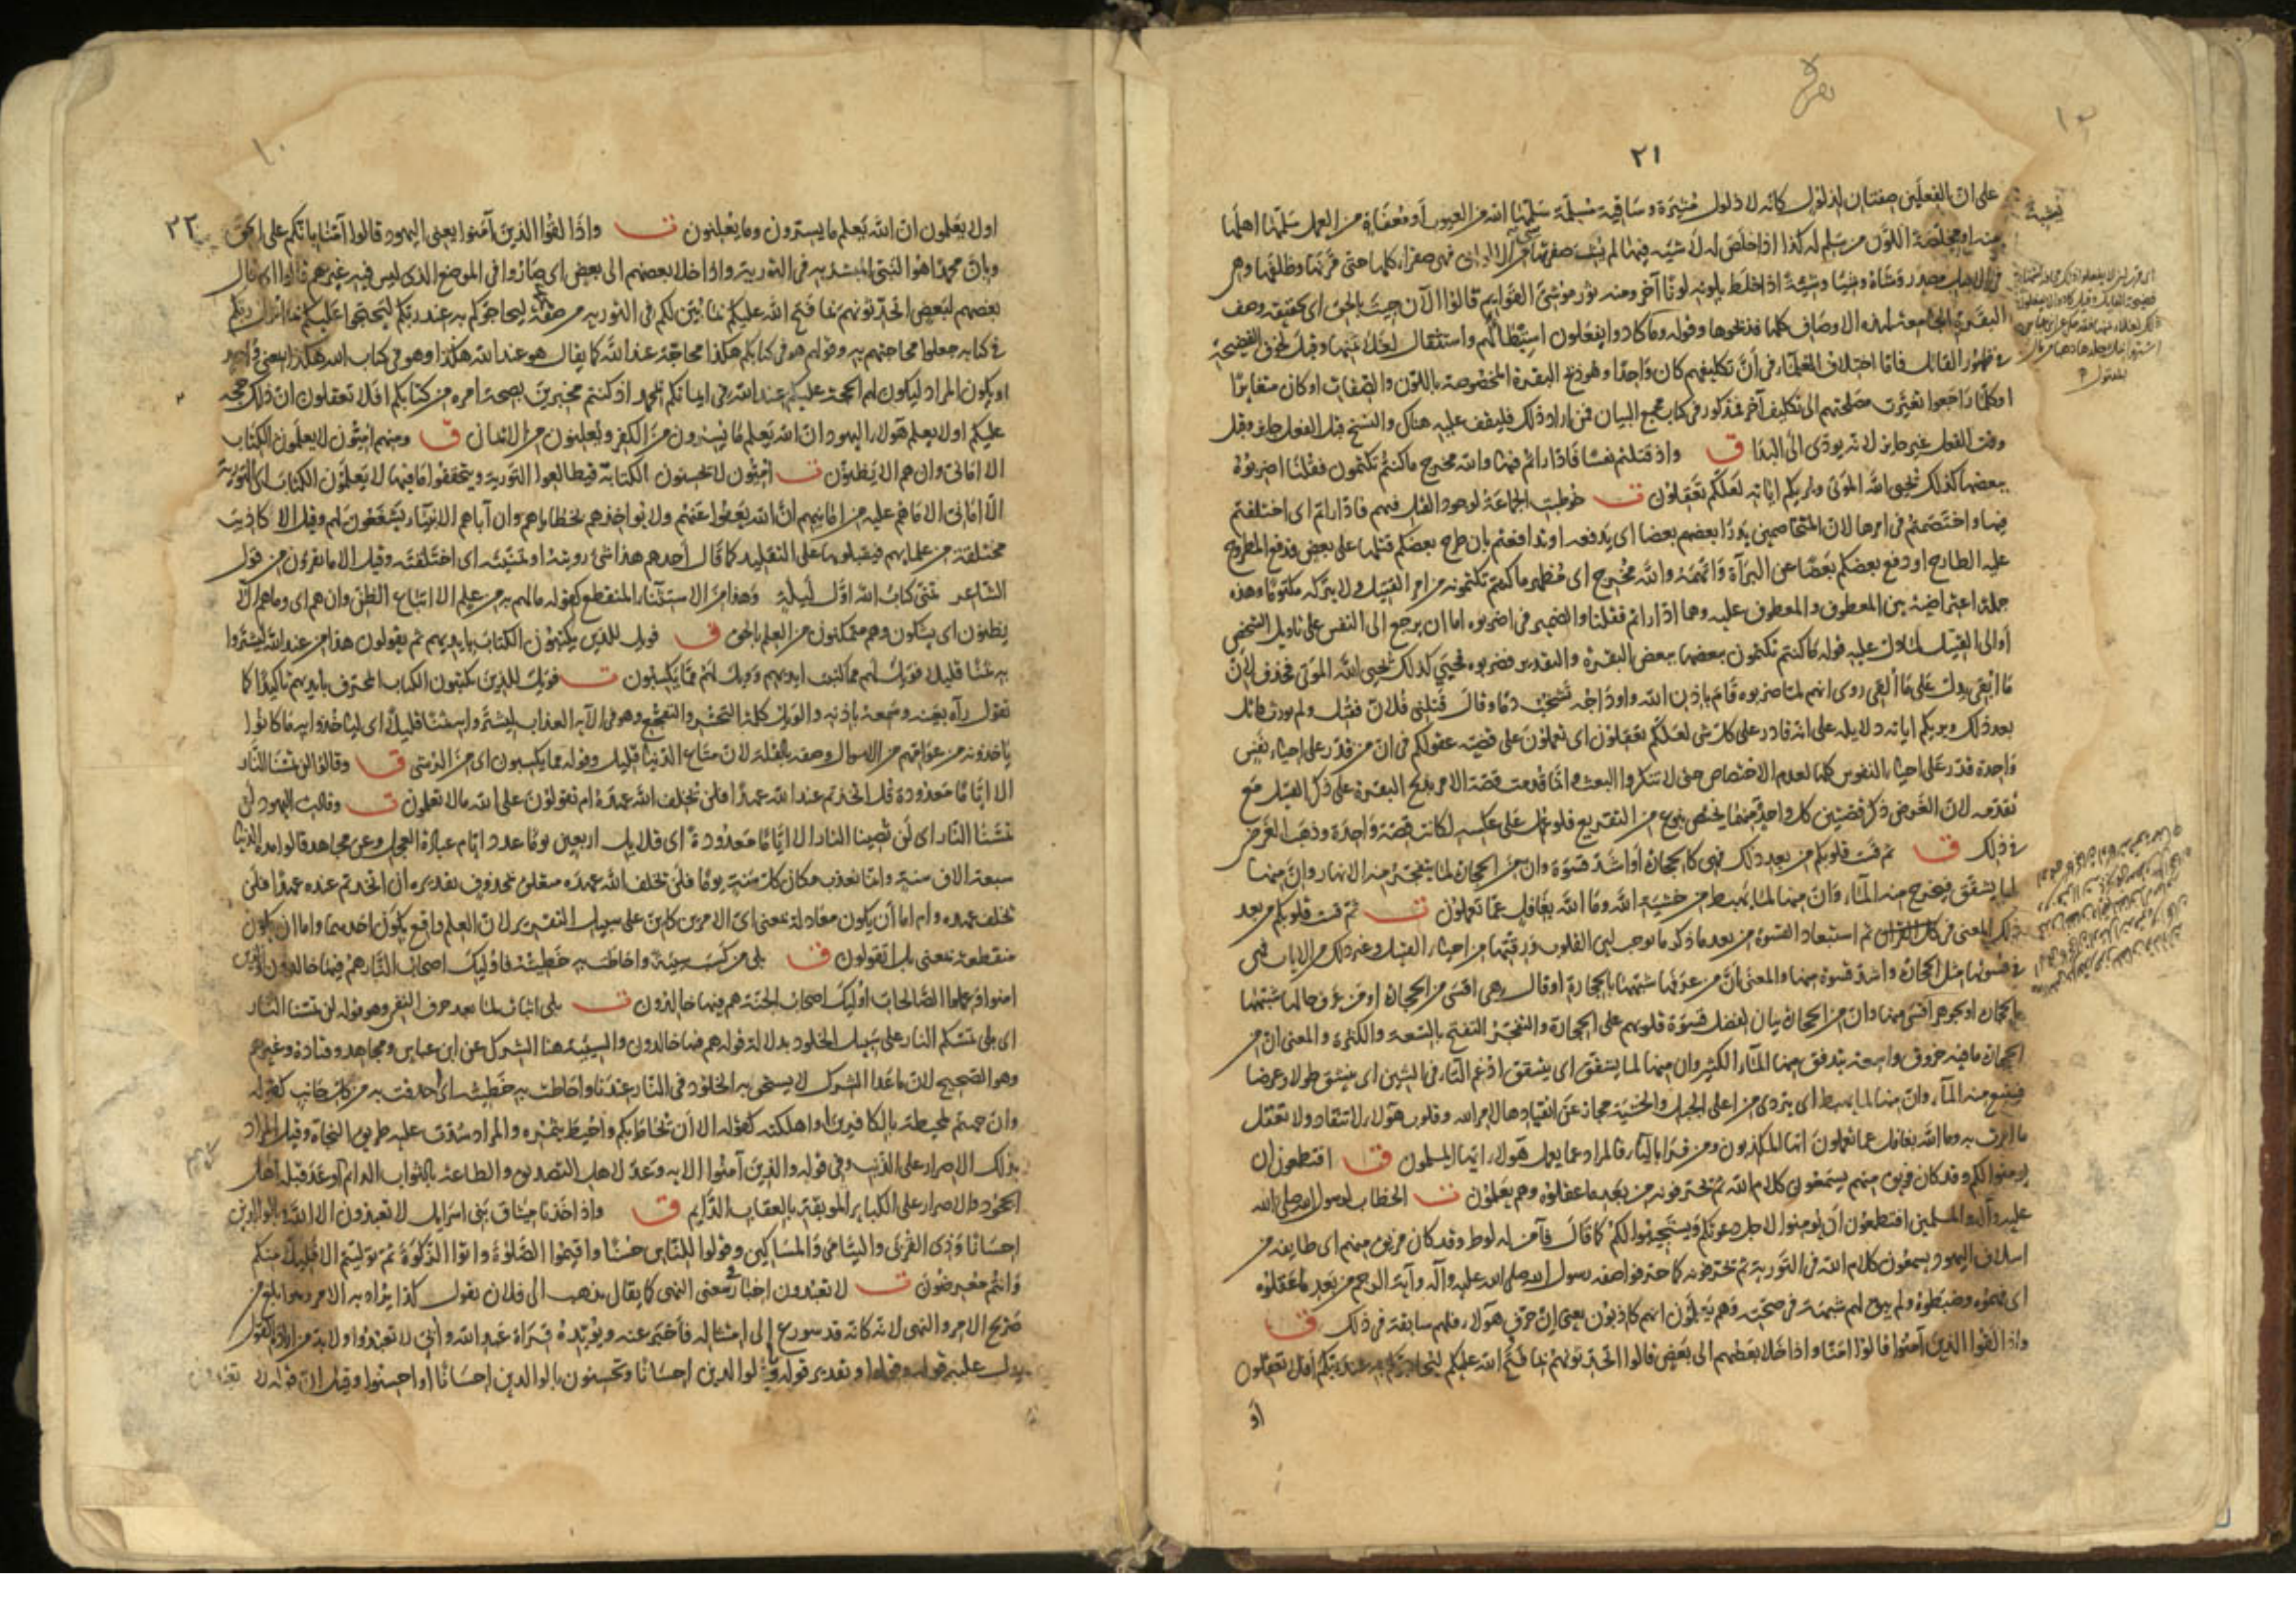 ٢١
على ان الفعلين صفتان لذلول كانه لا ذلول مثيرة وساقية مسلّمة سلّمها الله من العيوب او معفاة من العمل سلّمها اهلها
منه او مخلصة اللون من سلم له كذا اذا خلص له لا شية فيها لم يشب صفرتها شيء من الالوان فهي صفراء كلها حتى قرنها وظلفها وهي
في الاصل مصدر وشاه وشيا وشية اذا خلط بلونه لونا آخر ومنه ثور موشى القوايم قالوا الآن جئت بالحق اي بحقيقة وصف
البقرة الجامعة لهذه الاوصاف كلها فذبحوها وقوله وما كادوا يفعلون استبطاء لهم واستثقال لعلل عنها وقيل لخوف الفضيحة
في ظهور القاتل فاما اختلاف العلماء في أن تكليفهم كان واحدا وهو ذبح البقرة المخصوصة باللون والصفات او كان متغايرا
وكلما راجعوا تغيرت مصلحتهم الى تكليف آخر فمذكور في كتاب مجمع البيان فمن اراد ذلك فليقف عليه هناك والنسخ قبل الفعل جايز وقبل
وقت الفعل غير جايز لانه يودى الى البدا ق واذ قتلتم نفسا فاداراتم فيها والله مخرج ما كنتم تكتمون فقلنا اضربوه
ببعضها كذلك يحيى الله الموتى ويريكم اياته لعلكم تعقلون ت خوطبت الجماعة لوجود القتل فيهم فاداراتم اى اختلفتم
فيها واختصمتم في امرها لان المتخاصمين يدرا بعضهم بعضا اى يدفعه او تدافعتم بان طرح بعضكم قتلها على بعض فدفع المطروح
عليه الطارح او دفع بعضكم بعضا عن البراة واتهمه والله مخرج اى مظهر ما كنتم تكتمونه من امر القتيل ولا يتركه مكتوما وهذه
جملة اعتراضية بين المعطوف والمعطوف عليه وهما اداراتم فقلنا والضمير في اضربوه اما ان يرجع الى النفس على تاويل الشخص
أو الى القتيل لما دل عليه قوله ما كنتم تكتمون ببعضها ببعض البقرة والتقدير فضربوه فحيي كذلك يحيي الله الموتى فحذف لان
ما ابقى يدل على ما القى روى انهم لما ضربوه قام باذن الله واوداجه تشخب دما وقال قتلني فلان فقتل ولم يورث قاتل
بعد ذلك ويريكم اياته دلايله على انه قادر على كل شى لعلكم تعقلون اى تعملون على قضية عقولكم في ان من قدر على احياء نفس
واحدة قدر على احياء النفوس كلها لعدم الاختصاص حتى لا تنكروا البعث وانما قدمت قصة الامر بذبح البقرة على ذكر القتيل مع
تقدمه لان الغرض ذكر قصتين كل واحدة منهما يختص بنوع من التقريع فلو عمل على عكسه لكانت قصة واحدة وذهب الغرض
في ذلك ق ثم قست قلوبكم من بعد ذلك فهى كالحجارة أو اشد قسوة وان من الحجارة لما يتفجر منه الانهار وان منها
لما يشقق فيخرج منه الماء وان منها لما يهبط من خشية الله وما الله بغافل عما تعملون ت ثم قست قلوبكم من بعد
ذلك المعنى ثم استبعاد القسوة من بعد ما ذكر ما يوجب لين القلوب ورقتها من احياء القتيل وغير ذلك من الايات فهى
في قسوتها مثل الحجارة واشد قسوة منها والمعنى أن من عرفها شبهها بالحجارة او قال هى اقسى من الحجارة او من عرف حالها شبهها
بالحجارة او بجوهر اقسى منها وان من الحجارة بيان لفضل قسوة قلوبهم على الحجارة والتفجر التفتح بالسعة والكثرة والمعنى ان من
الحجارة ما فيه خروق واسعة يتدفق منها الماء الكثير وان منها لما يشقق اى يتشقق ادغم التاء في الشين اى ينشق طولا وعرضا
فينبع منه الماء وان منها لما يهبط اى يتردى من اعلى الجبل والخشية مجاز عن انقيادها لامر الله وقلوب هؤلاء لا تنقاد ولا تفعل
ما امرت به وما الله بغافل عما تعملون ايها المكذبون ومن قرا بالياء فالمراد عما يعمل هؤلاء ايها المسلمون ق افتطمعون ان
يومنوا لكم وقد كان فريق منهم يسمعون كلام الله ثم يحرفونه من بعد ما عقلوه وهم يعلمون ت الخطاب لرسول الله صلى الله
عليه وآله والمسلمين افتطمعون ان يومنوا لاجل دعوتكم ويستجيبوا لكم كما قال فآمن له لوط وقد كان فريق منهم اى طايفة من
اسلاف اليهود يسمعون كلام الله في التورية ثم يحرفونه كما حرفوا صفه رسول الله صلى الله عليه وآله وآية الرجم من بعد ما عقلوه
اى فهموه وضبطوه ولم يبق لهم شبهة في صحته وهم يعلمون انهم كاذبون يعني إن حرف هؤلاء فلهم سابقة في ذلك ق
واذا لقوا الذين آمنوا قالوا امنا واذا خلا بعضهم الى بعض قالوا اتحدثونهم بما فتح الله عليكم ليحاجوكم به عند ربكم أفلا تعقلون
أو
٢٢
اولا يعلمون ان الله يعلم ما يسرون وما يعلنون ت واذا لقوا الذين آمنوا يعني اليهود قالوا آمنا بانكم على الحق
وبان محمدا هو النبي المبشر به في التورية واذا خلا بعضهم الى بعض اى صاروا في الموضع الذى ليس فيه غيرهم قالوا اى قال
بعضهم لبعض اتحدثونهم بما فتح الله عليكم بما بين لكم في التورية من صفة ليحاجوكم به عند ربكم ليحتجوا عليكم بما انزل ربكم
في كتابه جعلوا محاجتهم به وقولهم هو في كتابكم هكذا محاجة عند الله كما يقال هو عند الله هكذا وهو في كتاب الله هكذا بمعنى واحد
او يكون المراد ليكون لهم الحجة عليكم عند الله في ايمانكم بمحمد اذ كنتم مخبرين بصحة امره من كتابكم افلا تعقلون ان ذلك حجة
عليكم اولا يعلم هؤلاء اليهود ان الله يعلم ما يسرون من الكفر ويعلنون من الايمان ق ومنهم اميون لا يعلمون الكتاب
الا امانى وان هم الا يظنون ت اميون لا يحسنون الكتابة فيطالعوا التورية ويتحققوا ما فيها لا يعلمون الكتاب اى التورية
الا امانى الا ما هم عليه من امانيهم ان الله يعفوا عنهم ولا يواخذهم بخطاياهم وان آباهم الانبياء يشفعون لهم وقيل الا كاذيب
مختلقة من علمايهم فيقبلونها على التقليد كما قال أحدهم هذا شىء رويته او تمنيته اى اختلقته وقيل الا ما يقرؤن من قول
الشاعر تمنى كتاب الله اول ليلة وهذا من الاستثناء المنقطع كقوله ما لهم به من علم الا اتباع الظن وان هم اى وما هم الا
يظنون اى يشكون وهم متمكنون من العلم بالحق ق فويل للذين يكتبون الكتاب بايديهم ثم يقولون هذا من عند الله ليشتروا
به ثمنا قليلا فويل لهم مما كتبت ايديهم وويل لهم مما يكسبون ت فويل للذين يكتبون الكتاب المحرف بايديهم تاكيدا كما
تقول رآه بعينه وسمعه باذنه والويل كلمة التحسر والتفجع وهو في الآية العذاب ليشتروا به ثمنا قليلا اى لياخذوا به ما كانوا
ياخذونه من عوامهم من الاموال وصفه بالقلة لان متاع الدنيا قليل وقوله مما يكسبون اى من الرشى ق وقالوا لن تمسنا النار
الا اياما معدودة قل اتخذتم عند الله عهدا فلن يخلف الله عهده ام تقولون على الله ما لا تعلمون ت وقالت اليهود لن
تمسنا النار اى لن تصيبنا النار الا اياما معدودة اى قلايل اربعين يوما عدد ايام عبادة العجل وعن مجاهد قالوا مدة الدنيا
سبعة الاف سنة وانما نعذب مكان كل سنة يوما فلن يخلف الله عهده متعلق بمحذوف تقديره ان اتخذتم عنده عهدا فلن
يخلف عهده وام اما أن يكون معادلة بمعنى اى الامرين كاين على سبيل التقرير لان العلم واقع بكون احدهما واما ان يكون
منقطعة بمعنى بل اتقولون ق بلى من كسب سيئة واحاطت به خطيئته فاوليك اصحاب النار هم فيها خالدون والذين
امنوا وعملوا الصالحات اوليك اصحاب الجنة هم فيها خالدون ت بلى اثبات لما بعد حرف النفي وهو قوله لن تمسنا النار
اى بلى تمسكم النار على سبيل الخلود بدلالة قوله هم فيها خالدون والسيئة هنا الشرك عن ابن عباس ومجاهد وقتادة وغيرهم
وهو الصحيح لان ما عدا الشرك لا يستحق به الخلود في النار عندنا واحاطت به خطيئته اى احدقت به من كل جانب كقوله
وان جهنم لمحيطة بالكافرين او اهلكته كقوله الا أن يحاط بكم واحيط بثمره والمراد سدت عليه طريق النجاة وقيل المراد
بذلك الاصرار على الذنب وفي قوله والذين آمنوا الاية وعد لاهل التصديق والطاعة بالثواب الدايم كما وعد قبله اهل
الجحود والاصرار على الكباير الموبقة بالعقاب الدايم ق واذ اخذنا ميثاق بنى اسرايل لا تعبدون الا الله وبالوالدين
احسانا وذى القربى واليتامى والمساكين وقولوا للناس حسنا واقيموا الصلوة واتوا الزكوة ثم توليتم الا قليلا منكم
وانتم معرضون ت لا تعبدون اخبار في معنى النهى كما يقال تذهب الى فلان تقول كذا يراد به الامر وهو ابلغ من
صريح الامر والنهى لانه كانه قد سورع الى امتثاله فأخبر عنه ويؤيده قراة عبد الله وابى لا تعبدوا ولا بد من ارادة القول
يدل عليه قوله وقولوا وتقدير قوله وبالوالدين احسانا وتحسنون بالوالدين احسانا او احسنوا وقيل ان قوله لا تعبدون